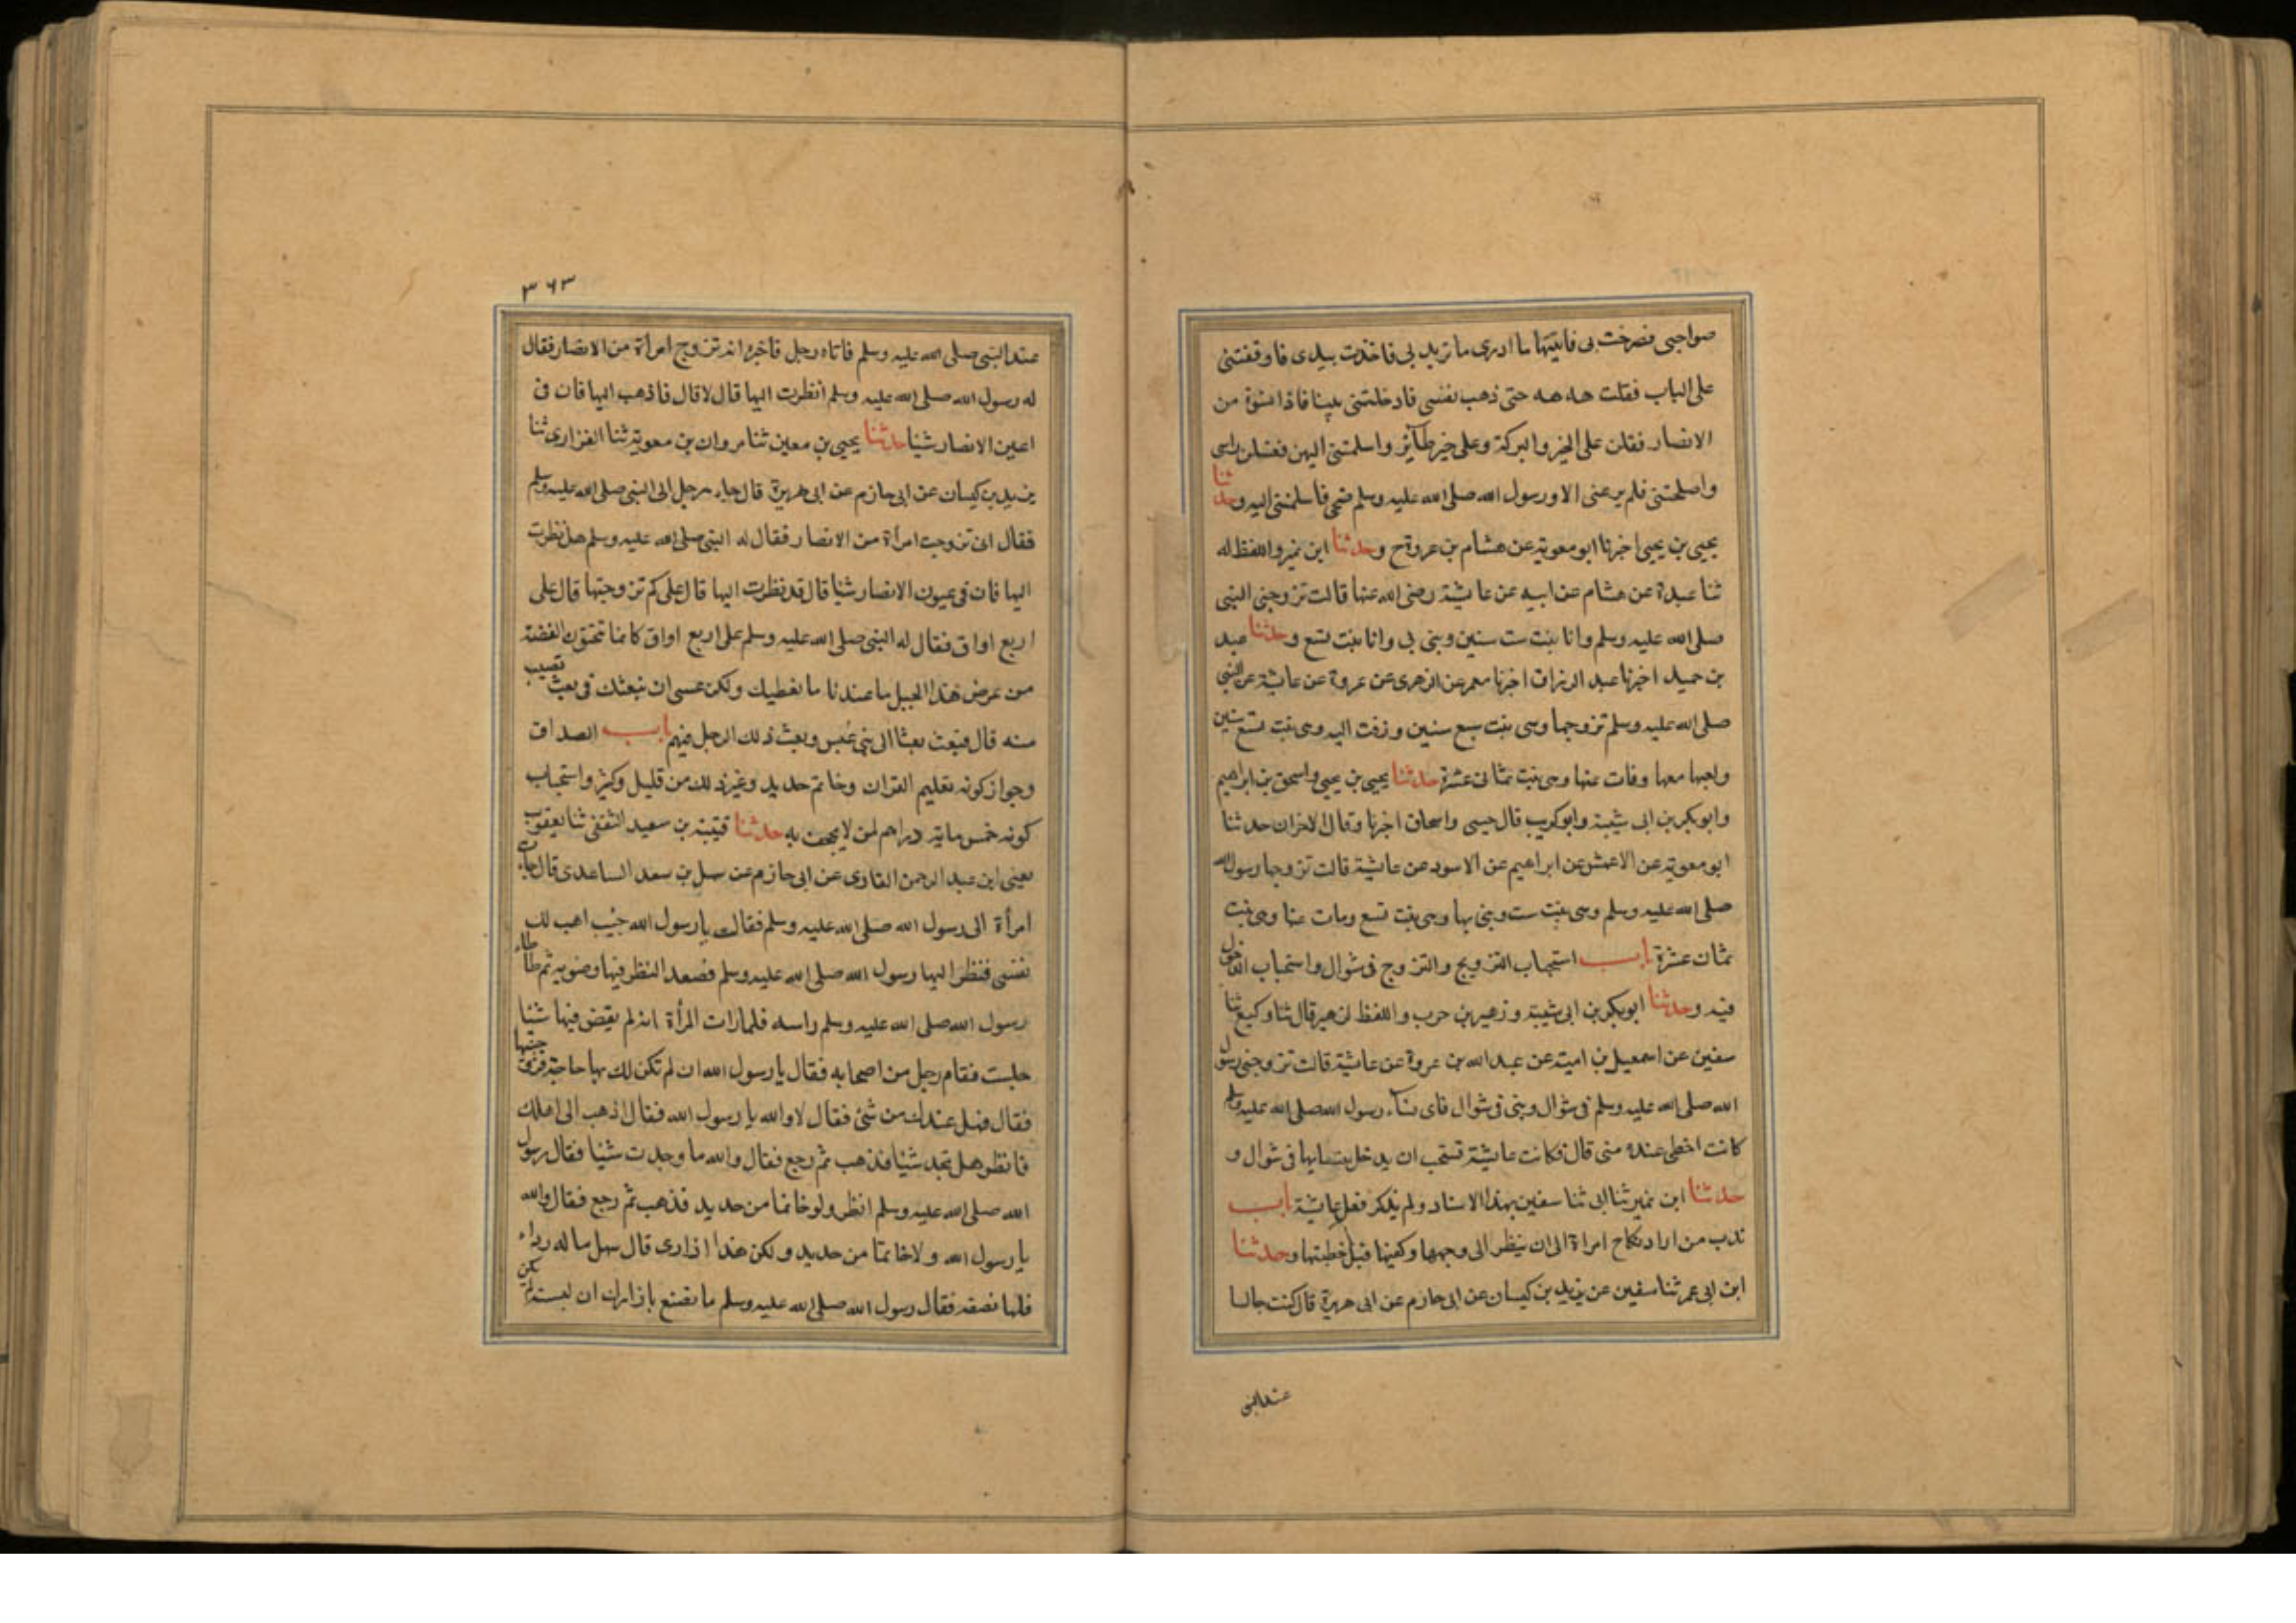 صواحبى فصرخت بى فاتيتها ما ادرى ما تريد بى فاخذت بيدى فاوقفتنى
على الباب فقلت هه هه حتى ذهب نفسى فادخلتنى بيتا فاذا نسوة من
الانصار فقلن على الخير والبركة وعلى خير طآئر واسلمتنى اليهن فغسلن راسى
واصلحننى فلم يرعنى الا ورسول الله صلى الله عليه وسلم ضحى فاسلمننى اليه وحدثنا
يحيى بن يحيى اخبرنا ابو معوية عن هشام بن عروة ح وحدثنا ابن نمير واللفظ له
ثنا عبدة عن هشام عن ابيه عن عايشة رضى الله عنها قالت تزوجنى النبى
صلى الله عليه وسلم وانا بنت ست سنين وبنى بى وانا بنت تسع وحدثنا عبد
بن حميد اخبرنا عبد الرزاق اخبرنا معمر عن الزهرى عن عروة عن عايشة عن النبى
صلى الله عليه وسلم تزوجها وهى بنت سبع سنين وزفت اليه وهى بنت تسع سنين
ولعبها معها ومات عنها وهى بنت ثمان عشرة حدثنا يحيى بن يحيى واسحق بن ابراهيم
وابو بكر بن ابى شيبة وابو كريب قال يحيى واسحاق اخبرنا وقال الاخران حدثنا
ابو معوية عن الاعمش عن ابراهيم عن الاسود عن عايشة قالت تزوجها رسول الله
صلى الله عليه وسلم وهى بنت ست وبنى بها وهى بنت تسع ومات عنها وهى بنت
ثمان عشرة باب استحباب التزويج والتزوج فى شوال واستحباب الدخول
فيه وحدثنا ابو بكر بن ابى شيبة وزهير بن حرب واللفظ لزهير قال ثنا وكيع ثنا
سفين عن اسمعيل بن امية عن عبد الله بن عروة عن عايشة قالت تزوجنى رسول
الله صلى الله عليه وسلم فى شوال وبنى فى شوال فاى نسآء رسول الله صلى الله عليه وسلم
كانت احظى عنده منى قال فكانت عايشة تستحب ان يدخل بنسايها فى شوال و
حدثنا ابن نمير ثنا ابى ثنا سفين بهذا الاسناد ولم يذكر فعل عايشة باب
ندب من اراد نكاح امراة الى ان ينظر الى وجهها وكفيها قبل خطبتها وحدثنا
ابن ابى عمر ثنا سفين عن يزيد بن كيسان عن ابى حازم عن ابى هريرة قال كنت جالسا
عند النبى
٣٦٣
عند النبى صلى الله عليه وسلم فاتاه رجل فاخبره انه تزوج امرأة من الانصار فقال
له رسول الله صلى الله عليه وسلم انظرت اليها قال لا قال فاذهب اليها فان فى
اعين الانصار شيئا حدثنا يحيى بن معين ثنا مروان بن معوية ثنا الفزارى ثنا
يزيد بن كيسان عن ابى حازم عن ابى هريرة قال جاء رجل الى النبى صلى الله عليه وسلم
فقال انى تزوجت امرأة من الانصار فقال له النبى صلى الله عليه وسلم هل نظرت
اليها فان فى عيون الانصار شيئا قال قد نظرت اليها قال على كم تزوجتها قال على
اربع اواق فقال له النبى صلى الله عليه وسلم على اربع اواق كانما تنحتون الفضة
من عرض هذا الجبل ما عندنا ما نعطيك ولكن عسى ان نبعثك فى بعث تصيب
منه قال فبعث بعثا الى بنى عبس وبعث ذلك الرجل فيهم باب الصداق
وجواز كونه تعليم القران وخاتم حديد وغير ذلك من قليل وكثير واستحباب
كونه خمس ماية دراهم لمن لا يجحف به حدثنا قتيبة بن سعيد الثقفى ثنا يعقوب
يعنى ابن عبد الرحمن القارى عن ابى حازم عن سهل بن سعد الساعدى قال جاءت
امرأة الى رسول الله صلى الله عليه وسلم فقالت يا رسول الله جئت اهب لك
نفسى فنظر اليها رسول الله صلى الله عليه وسلم فصعد النظر فيها وصوبه ثم طأطأ
رسول الله صلى الله عليه وسلم راسه فلما رات المرأة انه لم يقض فيها شيئا
جلست فقام رجل من اصحابه فقال يا رسول الله ان لم تكن لك بها حاجة فزوجنيها
فقال فهل عندك من شئ فقال لا والله يا رسول الله فقال اذهب الى اهلك
فانظر هل تجد شيئا فذهب ثم رجع فقال والله ما وجدت شيئا فقال رسول
الله صلى الله عليه وسلم انظر ولو خاتما من حديد فذهب ثم رجع فقال والله
يا رسول الله ولا خاتما من حديد ولكن هذا ازارى قال سهل ما له رداء
فلها نصفه فقال رسول الله صلى الله عليه وسلم ما تصنع بازارك ان لبسته لم يكن